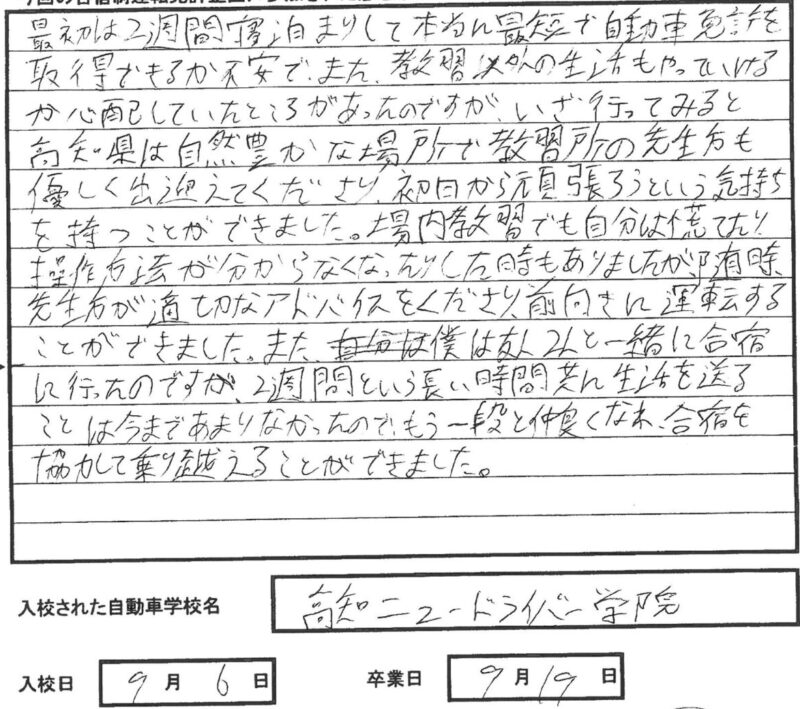 最初は2週間寝泊まりして本当に最短で自動車免許を
取得できるか不安で、また、教習以外の生活もやっていける
か心配していたところがあったのですが、いざ行ってみると
高知県は自然豊かな場所で教習所の先生方も
優しく出迎えてくださり、初日から頑張ろうという気持ち
を持つことができました。場内教習でも自分は慌てたり
操作方法が分からなくなったりした時もありましたが、随時、
先生方が適切なアドバイスをくださり、前向きに運転する
ことができました。また、自分は僕は友人2人と一緒に合宿
に行ったのですが、2週間という長い時間共に生活を送る
ことは今まであまりなかったので、もう一段と仲良くなれ、合宿を
協力して乗り越えることができました。
入校された自動車学校名 高知ニュードライバー学院
入校日 9月6日 卒業日 9月19日